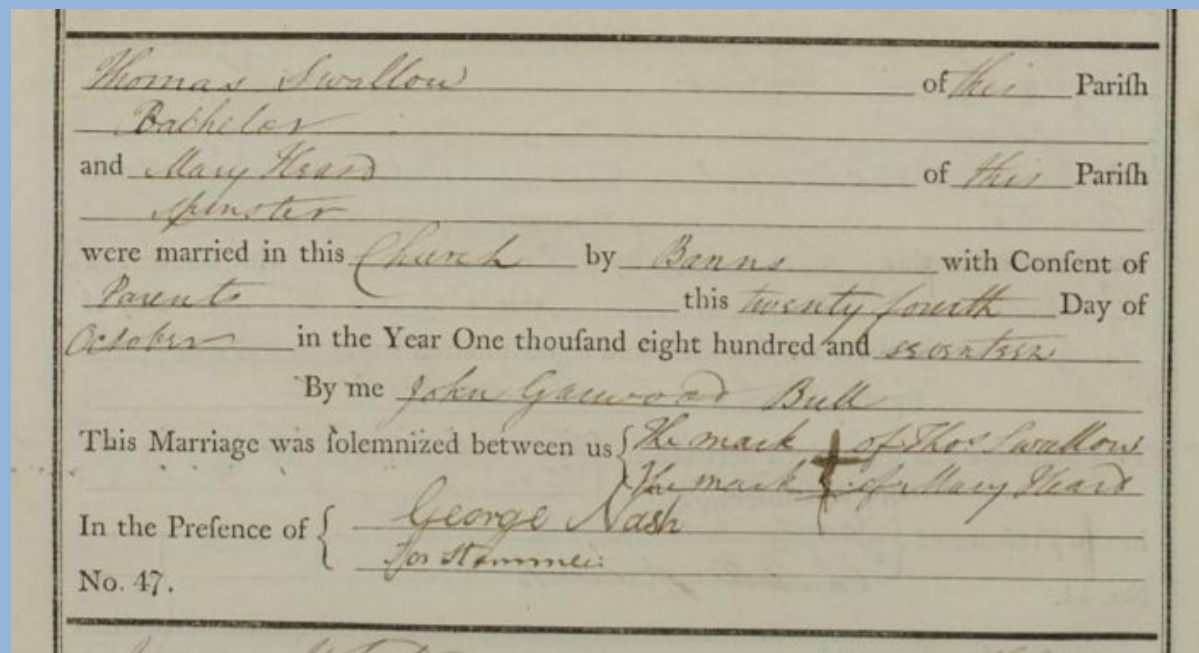 Thomas Swallow of this Pariſh
Bachelor
and Mary Heard of this Pariſh
Spinster
were married in this Church by Banns with Conſent of
Parents this twenty fourth Day of
October in the Year One thouſand eight hundred and seventeen
By me John Garwood Bull
This Marriage was ſolemnized between us { The mark of Thos. Swallow
The mark of Mary Heard
In the Preſence of { George Nash
No. 47.